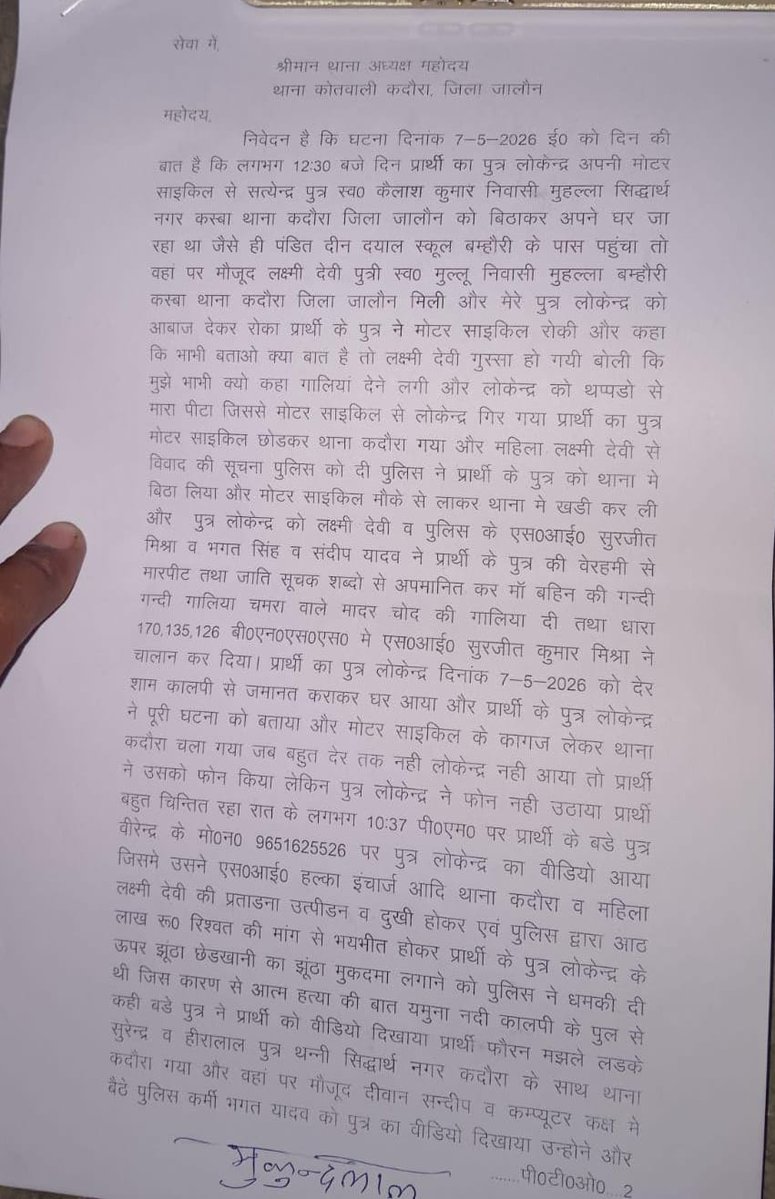 सेवा में,
श्रीमान थाना अध्यक्ष महोदय
थाना कोतवाली कदौरा, जिला जालौन
महोदय,
निवेदन है कि घटना दिनांक 7–5–2026 ई0 को दिन की
बात है कि लगभग 12:30 बजे दिन प्रार्थी का पुत्र लोकेन्द्र अपनी मोटर
साइकिल से सत्येन्द्र पुत्र स्व0 कैलाश कुमार निवासी मुहल्ला सिद्धार्थ
नगर कस्बा थाना कदौरा जिला जालौन को बिठाकर अपने घर जा
रहा था जैसे ही पंडित दीन दयाल स्कूल बम्हौरी के पास पहुंचा तो
वहां पर मौजूद लक्ष्मी देवी पुत्री स्व0 मुल्लू निवासी मुहल्ला बम्हौरी
कस्बा थाना कदौरा जिला जालौन मिली और मेरे पुत्र लोकेन्द्र को
आबाज देकर रोका प्रार्थी के पुत्र ने मोटर साइकिल रोकी और कहा
कि भाभी बताओ क्या बात है तो लक्ष्मी देवी गुस्सा हो गयी बोली कि
मुझे भाभी क्यो कहा गालियां देने लगी और लोकेन्द्र को थप्पडो से
मारा पीटा जिससे मोटर साइकिल से लोकेन्द्र गिर गया प्रार्थी का पुत्र
मोटर साइकिल छोडकर थाना कदौरा गया और महिला लक्ष्मी देवी से
विवाद की सूचना पुलिस को दी पुलिस ने प्रार्थी के पुत्र को थाना मे
बिठा लिया और मोटर साइकिल मौके से लाकर थाना मे खडी कर ली
और पुत्र लोकेन्द्र को लक्ष्मी देवी व पुलिस के एस0आई0 सुरजीत
मिश्रा व भगत सिंह व संदीप यादव ने प्रार्थी के पुत्र की वेरहमी से
मारपीट तथा जाति सूचक शब्दो से अपमानित कर मॉ बहिन की गन्दी
गन्दी गालिया चमरा वाले मादर चोद की गालिया दी तथा धारा
170,135,126 बी0एन0एस0एस0 मे एस0आई0 सुरजीत कुमार मिश्रा ने
चालान कर दिया। प्रार्थी का पुत्र लोकेन्द्र दिनांक 7–5–2026 को देर
शाम कालपी से जमानत कराकर घर आया और प्रार्थी के पुत्र लोकेन्द्र
ने पूरी घटना को बताया और मोटर साइकिल के कागज लेकर थाना
कदौरा चला गया जब बहुत देर तक नही लोकेन्द्र नही आया तो प्रार्थी
ने उसको फोन किया लेकिन पुत्र लोकेन्द्र ने फोन नही उठाया प्रार्थी
बहुत चिन्तित रहा रात के लगभग 10:37 पी0एम0 पर प्रार्थी के बडे पुत्र
वीरेन्द्र के मो0न0 9651625526 पर पुत्र लोकेन्द्र का वीडियो आया
जिसमे उसने एस0आई0 हल्का इंचार्ज आदि थाना कदौरा व महिला
लक्ष्मी देवी की प्रताडना उत्पीडन व दुखी होकर एवं पुलिस द्वारा आठ
लाख रू0 रिश्वत की मांग से भयभीत होकर प्रार्थी के पुत्र लोकेन्द्र के
ऊपर झूंठा छेडखानी का झूंठा मुकदमा लगाने को पुलिस ने धमकी दी
थी जिस कारण से आत्म हत्या की बात यमुना नदी कालपी के पुल से
कही बडे पुत्र ने प्रार्थी को वीडियो दिखाया प्रार्थी फौरन मझले लडके
सुरेन्द्र व हीरालाल पुत्र थन्नी सिद्धार्थ नगर कदौरा के साथ थाना
कदौरा गया और वहां पर मौजूद दीवान सन्दीप व कम्प्यूटर कक्ष मे
बैठे पुलिस कर्मी भगत यादव को पुत्र का वीडियो दिखाया उन्होने और
.......पी0टी0ओ0...2
मुकुन्दलाल